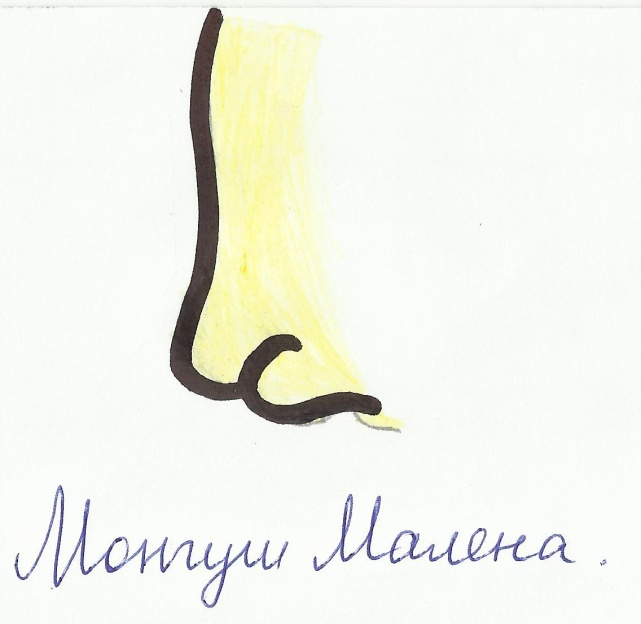 Монгуш Малена.